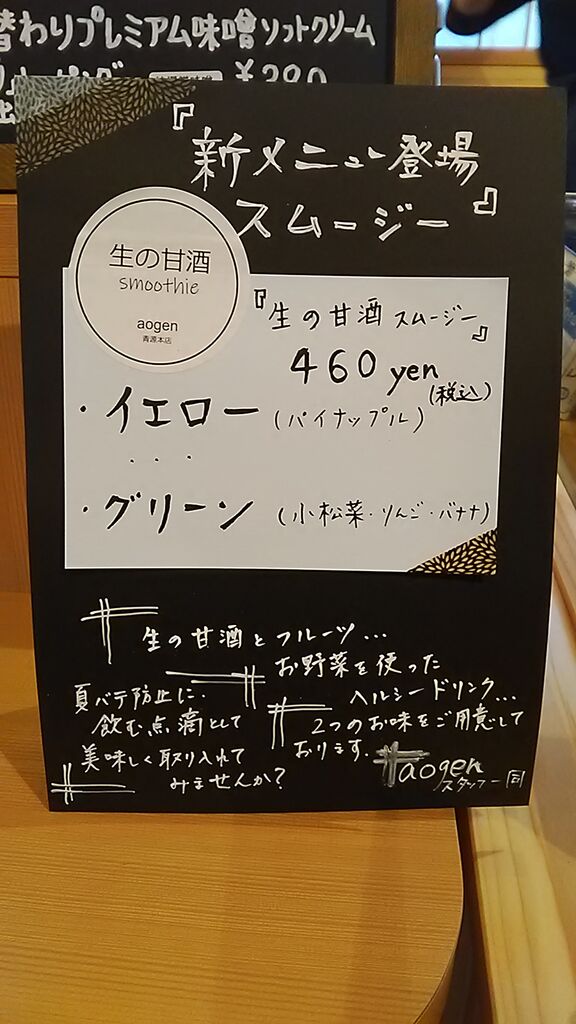 替わりプレミアム味噌ソフトクリーム
¥390
『新メニュー登場
スムージー』
生の甘酒
smoothie
aogen
青源本店
『生の甘酒スムージー』
460 yen
(税込)
・イエロー (パイナップル)
・・・
・グリーン (小松菜・りんご・バナナ)
生の甘酒とフルーツ...
お野菜を使った
ヘルシードリンク...
2つのお味をご用意して
おります。
夏バテ防止に、
飲む点滴として
美味しく取り入れて
みませんか?
aogen
スタッフ一同